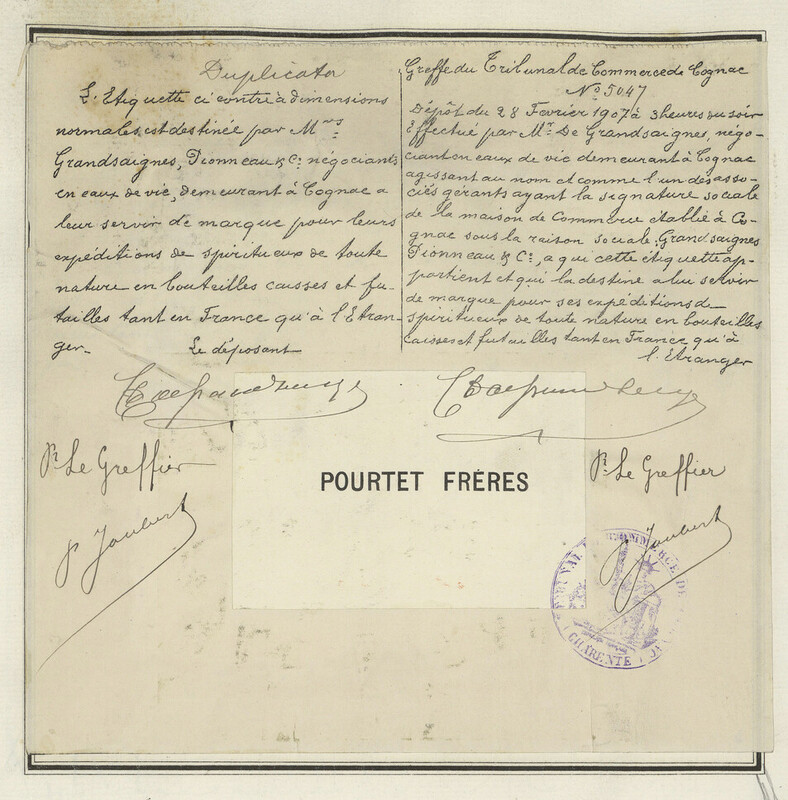 Duplicata
L'Etiquette ci contre à dimensions
normales, est destinée par Mrs
Grandsaignes, Pionneau & Cie négociants
en eaux de vie, demeurant à Cognac a
leur servir de marque pour leurs
expéditions de spiritueux de toute
nature en bouteilles caisses et fu-
tailles tant en France qu'à l'Etran-
ger.
Le déposant
Greffe du Tribunal de Commerce de Cognac
No 5047
Dépôt du 28 Fevrier 1907 à 3 heures du soir
Effectué par Mr. De Grandsaignes, négo-
ciant en eaux de vie demeurant à Cognac
agissant au nom et comme l'un des asso-
ciés gérants ayant la signature sociale
de la maison de Commerce etablie à Co-
gnac sous la raison sociale: Grandsaignes
Pionneau & Cie, a qui cette etiquette ap-
partient et qui la destine a lui servir
de marque pour ses expéditions de
spiritueux de toute nature en bouteilles
caisses et futailles tant en France qu'à
l'Etranger
Pr. Le Greffier
P Joubert
POURTET FRÈRES
Pr. Le Greffier
P Joubert
TRIBUNAL DE COMMERCE DE
CHARENTE